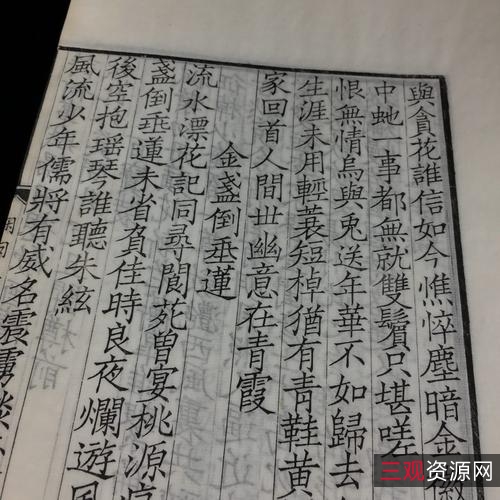 與貪花誰信如今憔悴塵暗金
中虵一事都無就雙鬢只堪嗟
恨無情烏與兎送年華不如歸去
生涯未用輕蓑短棹猶有青鞋黃
家回首人間世幽意在青霞
金盞倒垂蓮
流水漂花記同尋閬苑曾宴桃源
盞倒垂蓮未省負佳時良夜爛遊風
後空抱瑶琴誰聽朱絃
風流少年儒將有威名震虜談
閑閑
三观资源网